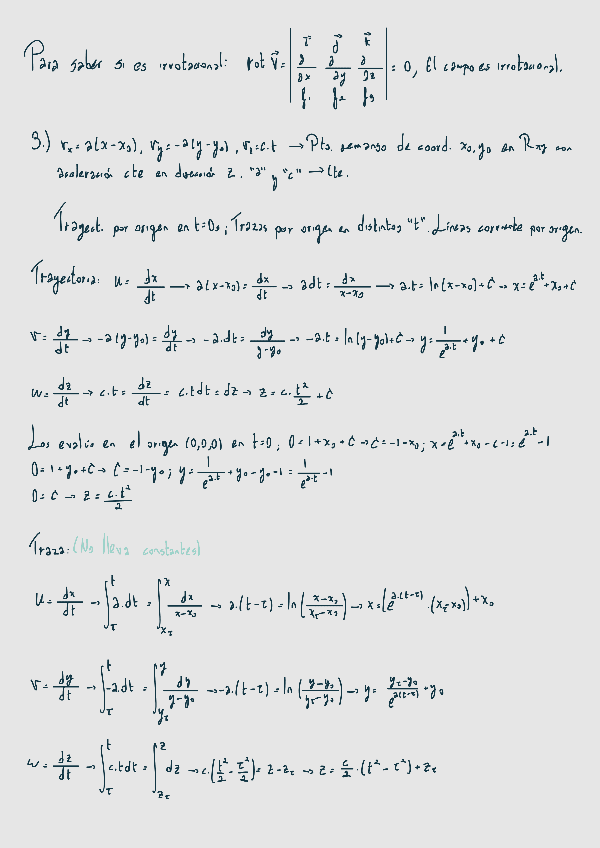 Para saber si es irrotacional: rot V⃗ = | i⃗ j⃗ k⃗ ; ∂/∂x ∂/∂y ∂/∂z ; f₁ f₂ f₃ | = 0, El campo es irrotacional.
3.) Vx = a(x-x₀), Vy = -a(y-y₀), Vz = c.t → Pts. remanso de coord. x₀, y₀ en con
aceleración cte en dirección z. "a" y "c" → Cte.
Trayect. por origen en t=0s; Trazas por origen en distintos "t". Líneas corriente por origen.
Trayectoria: u = dx/dt → a(x-x₀) = dx/dt → adt = dx/(x-x₀) → a.t = ln(x-x₀)+C → x = e^(a.t) + x₀ + C
v = dy/dt → -a(y-y₀) = dy/dt → -a.dt = dy/(y-y₀) → -a.t = ln(y-y₀)+C → y = 1/e^(a.t) + y₀ + C
w = dz/dt → c.t = dz/dt = c.tdt = dz → z = c.t²/2 + C
Los evalúo en el origen (0,0,0) en t=0; 0 = 1 + x₀ + C → C = -1-x₀; x = e^(a.t) + x₀ - x₀ - 1 = e^(a.t) - 1
0 = 1 + y₀ + C → C = -1-y₀; y = 1/e^(a.t) + y₀ - y₀ - 1 = 1/e^(a.t) - 1
0 = C → z = c.t²/2
Traza: (No lleva constantes)
u = dx/dt → ∫_τ^t a.dt = ∫_xτ^x dx/(x-x₀) → a.(t-τ) = ln((x-x₀)/(xτ-x₀)) → x = (e^(a.(t-τ)) . (xτ-x₀)) + x₀
v = dy/dt → ∫_τ^t -a.dt = ∫_yτ^y dy/(y-y₀) → -a.(t-τ) = ln((y-y₀)/(yτ-y₀)) → y = (yτ-y₀)/e^(a(t-τ)) + y₀
w = dz/dt → ∫_τ^t c.tdt = ∫_zτ^z dz → c.(t²/2 - τ²/2) = z-zτ → z = c/2 . (t² - τ²) + zτ